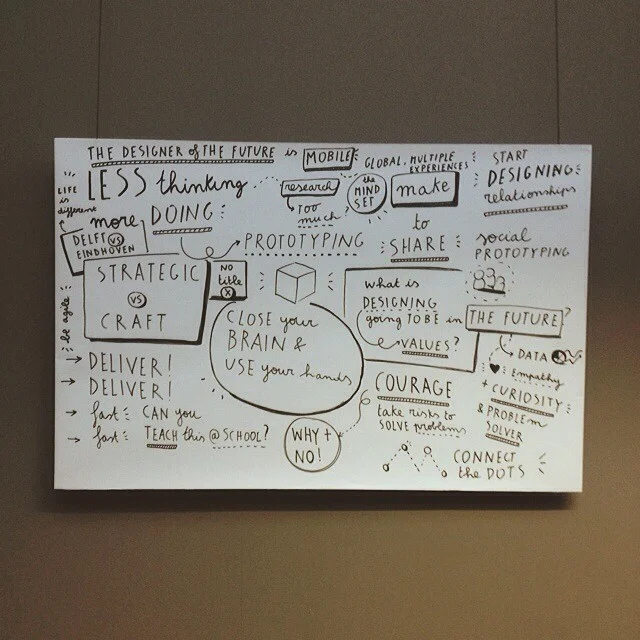 THE DESIGNER of THE FUTURE is MOBILE
GLOBAL, MULTIPLE
EXPERIENCES
START
DESIGNING
relationships
LIFE
is
different
LESS thinking
research
TOO
much?
the
MIND
SET
make
more DOING
DELFT VS
EINDHOVEN
PROTOTYPING
to
SHARE
social
PROTOTYPING
STRATEGIC
VS
CRAFT
NO
title
X
be agile
what is
DESIGNING
going TO BE in
VALUES?
THE FUTURE?
DATA
Empathy
+ CURIOSITY
& PROBLEM
SOLVER
CLOSE your
BRAIN &
USE your hands
DELIVER!
DELIVER!
fast CAN you
fast TEACH this @ SCHOOL?
WHY +
NO!
COURAGE
take risks to
SOLVE problems
CONNECT
the DOTS